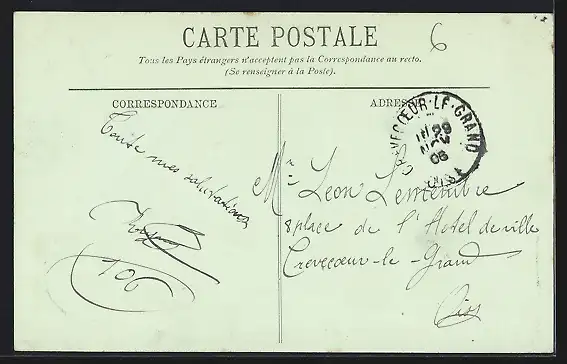 CARTE POSTALE
6
Tous les Pays étrangers n'acceptent pas la Correspondance au recto.
(Se renseigner à la Poste).
CORRESPONDANCE
ADRESSE
CREVECŒUR-LE-GRAND
29
NOV
06
OISE
Toutes mes salutations
Mr Leon Lemembre
8 place de l'Hotel de ville
Crevecœur-le-Grand
Oise